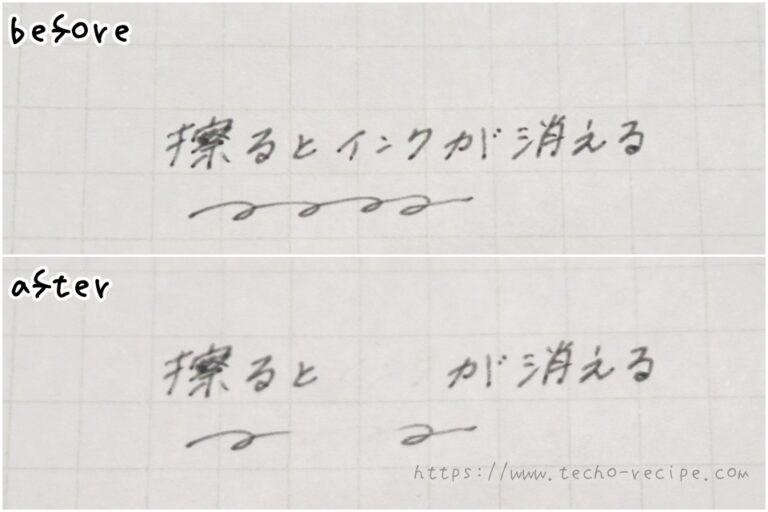 before
擦るとインクが消える
after
擦ると が消える
https://www.techo-recipe.com